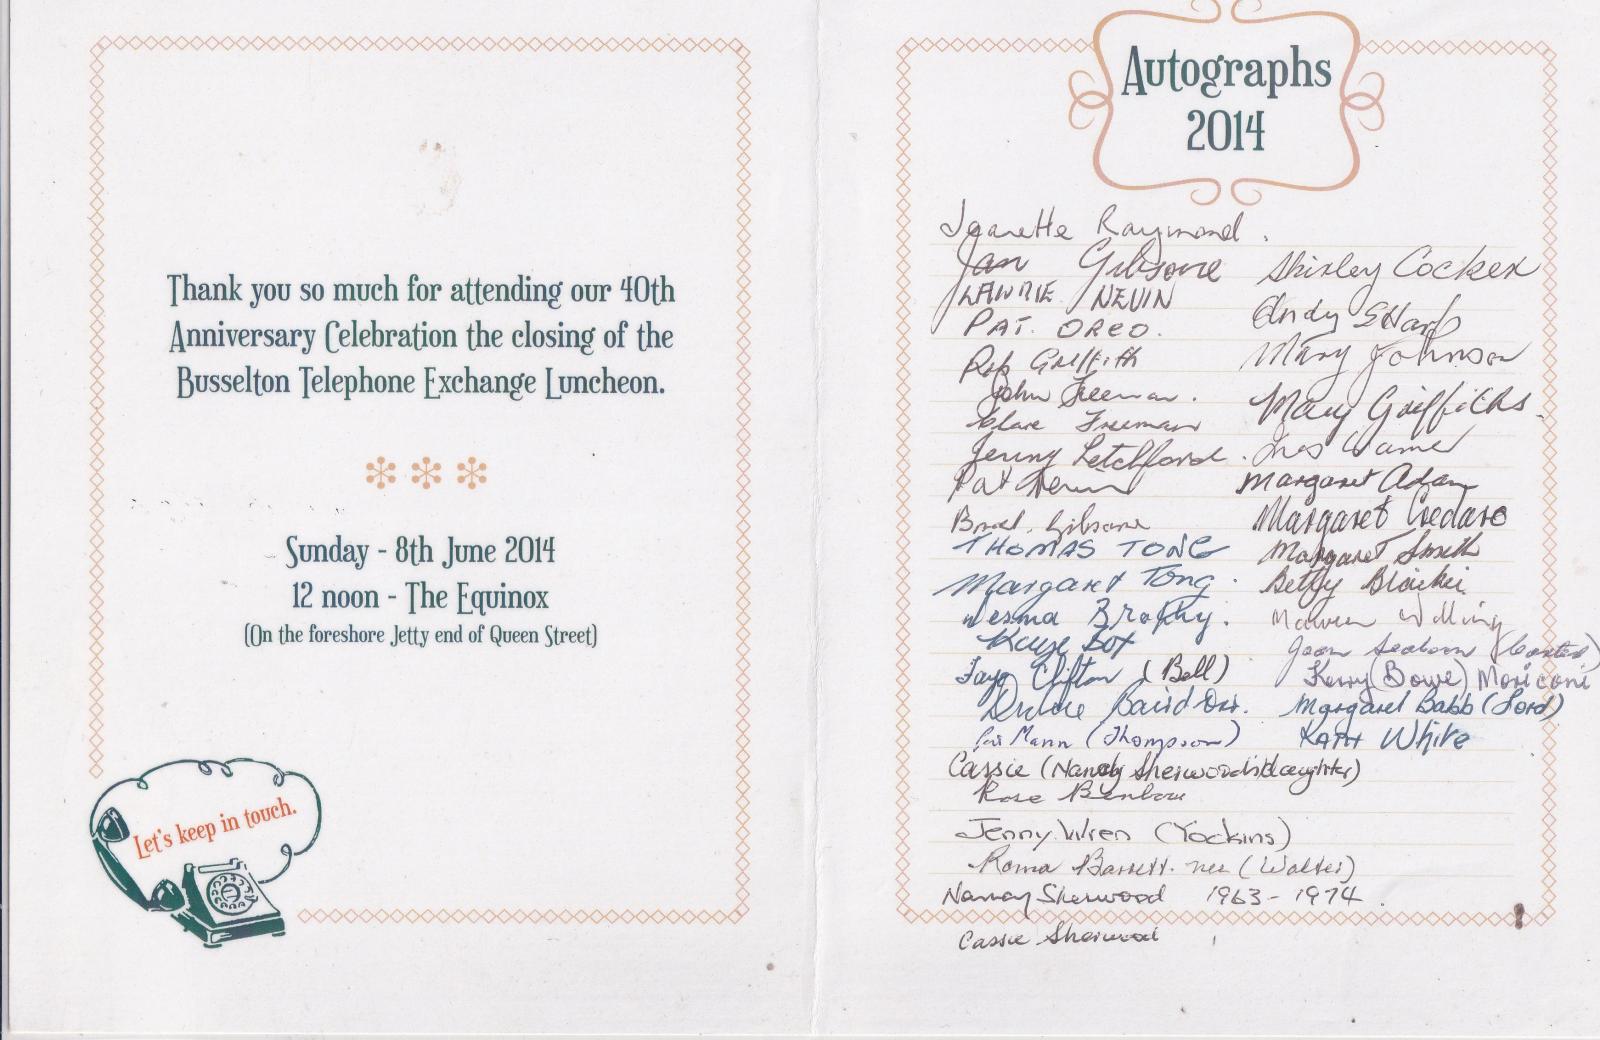 Thank you so much for attending our 40th
Anniversary Celebration the closing of the
Busselton Telephone Exchange Luncheon.
Sunday - 8th June 2014
12 noon - The Equinox
(On the foreshore Jetty end of Queen Street)
Let's keep in touch.
Autographs
2014
Jeanette Raymond.
Jan Gibsone
LAWRIE NEVIN
PAT. OREO.
Rob Griffith
John Freeman.
Clare Freeman
Jenny Letchford.
Pat
Brad. Gibsone
THOMAS TONG
Margaret Tong.
Nesma Brophy.
Kaye Box
Faye Clifton (Bell)
Baird
Mann (Thompson)
Cassie (Nancy Sherwood's daughter)
Rose Benbow
Jenny Wren (Yockins)
Roma Barrett. nee (Walter)
Nancy Sherwood 1963 - 1974.
Cassie Sherwood
Shirley Cocker
Andy SHarp
Mary Johnson
Mary Griffiths.
Margaret Adam
Margaret Credaro
Margaret Smith
Betty Blaikie.
Maureen
Joan Seaborn (Coates)
Kerry (Bowe) Moriconi
Margaret Babb (Lord)
KATH White